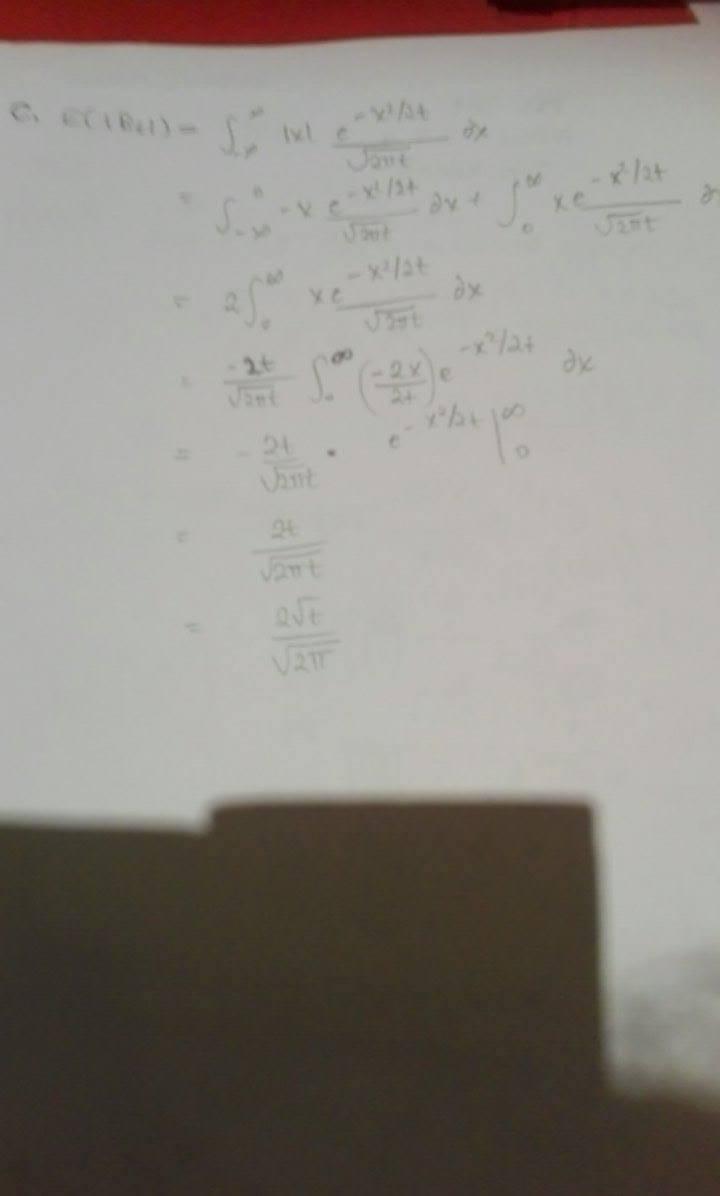 c. E(|Bt|) = ∫_{-∞}^{∞} |x| e^{-x²/2t}/√(2πt) ∂x
= ∫_{-∞}^{0} -x e^{-x²/2t}/√(2πt) ∂x + ∫_{0}^{∞} x e^{-x²/2t}/√(2πt) ∂
= 2∫_{0}^{∞} x e^{-x²/2t}/√(2πt) ∂x
= -2t/√(2πt) ∫_{0}^{∞} (-2x/2t) e^{-x²/2t} ∂x
= -2t/√(2πt) · e^{-x²/2t} |_{0}^{∞}
= 2t/√(2πt)
= 2√t/√(2π)